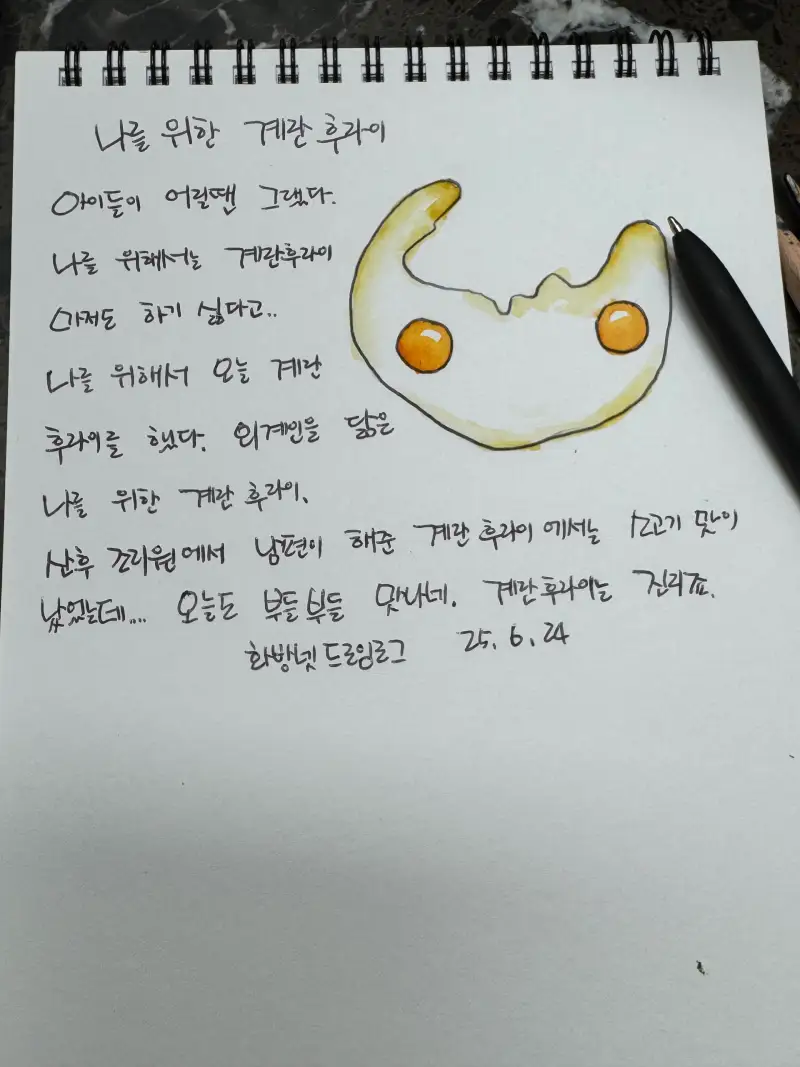 나를 위한 계란 후라이
아이들이 어릴땐 그랬다.
나를 위해서는 계란후라이
마저도 하기 싫다고..
나를 위해서 오늘 계란
후라이를 했다. 외계인을 닮은
나를 위한 계란 후라이.
산후 조리원에서 남편이 해준 계란 후라이에서는 소고기 맛이
났었는데.... 오늘도 부들부들 맛나네. 계란후라이는 진리죠.
화방넷 드로잉로그 25. 6. 24